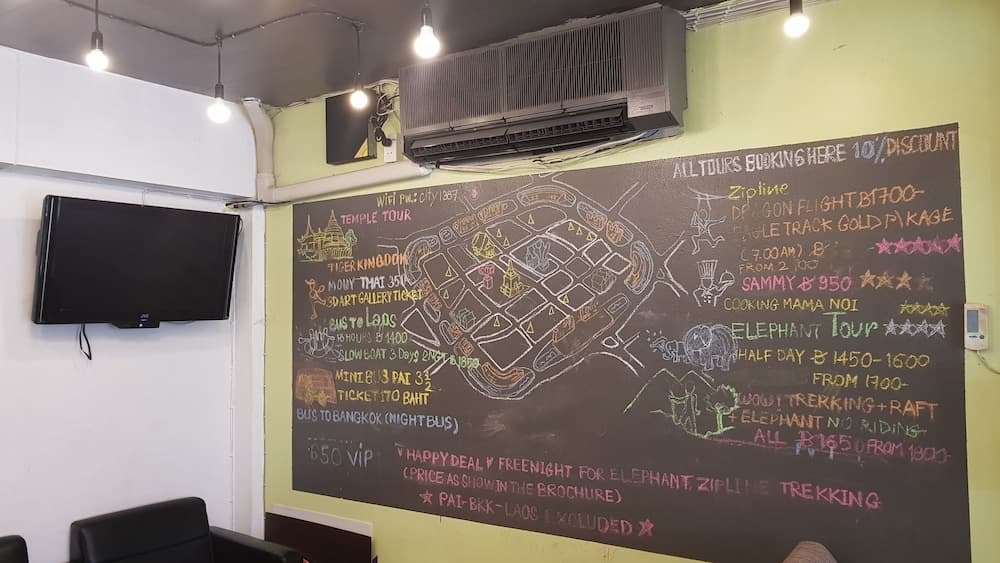 ALL TOURS BOOKING HERE 10% DISCOUNT
WiFi PW.: City 1387
TEMPLE TOUR
TIGER KINGDOM
MOUY THAI 350
3D ART GALLERY TICKET
BUS TO LAOS
18 HOURS ฿ 1400
SLOW BOAT 3 Days 2 NGT ฿ 1850
MINI BUS PAI 3 1/2
TICKET 170 BAHT
BUS TO BANGKOK (NIGHT BUS)
650 VIP
Zipline
DRAGON FLIGHT ฿1700-
EAGLE TRACK GOLD PAKAGE
(7.00AM) ฿
FROM
SAMMY ฿ 950
COOKING MAMA NOI
ELEPHANT TOUR
HALF DAY ฿ 1450-1600
FROM 1700-
WOW! TREKKING + RAFT
+ ELEPHANT NO RIDING
ALL ฿1650 FROM 1800-
HAPPY DEAL FREE NIGHT FOR ELEPHANT, ZIPLINE TREKKING
(PRICE AS SHOW IN THE BROCHURE)
★ PAI-BKK-LAOS EXCLUDED ★